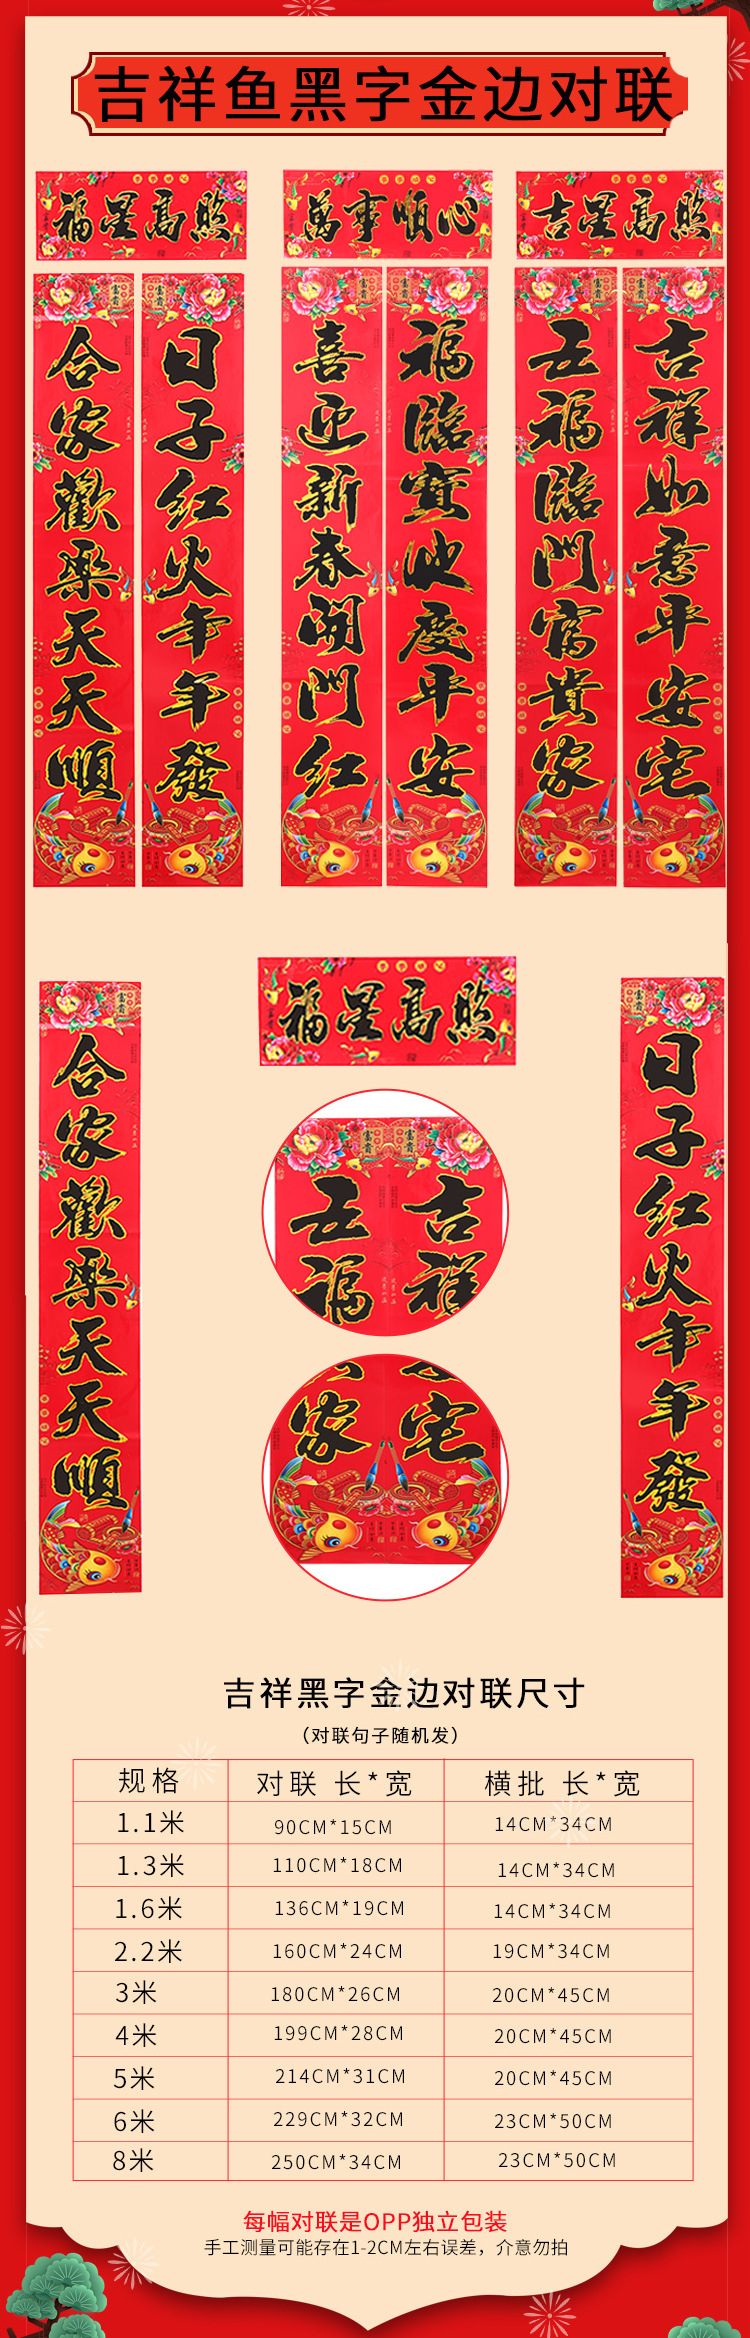 吉祥鱼黑字金边对联
福星高照
萬事順心
吉星高照
富貴
合家歡樂天天順
日子红火年年發
富貴
喜迎新春開門红
福臨寶地慶平安
富貴
五福臨門富貴家
吉祥如意平安宅
福星高照
富貴
合家歡樂天天順
富貴
日子红火年年發
富貴
五福
吉祥
家
宅
吉祥黑字金边对联尺寸
（对联句子随机发）
规格 对联 长*宽 横批 长*宽
1.1米 90CM*15CM 14CM*34CM
1.3米 110CM*18CM 14CM*34CM
1.6米 136CM*19CM 14CM*34CM
2.2米 160CM*24CM 19CM*34CM
3米 180CM*26CM 20CM*45CM
4米 199CM*28CM 20CM*45CM
5米 214CM*31CM 20CM*45CM
6米 229CM*32CM 23CM*50CM
8米 250CM*34CM 23CM*50CM
每幅对联是OPP独立包装
手工测量可能存在1-2CM左右误差，介意勿拍